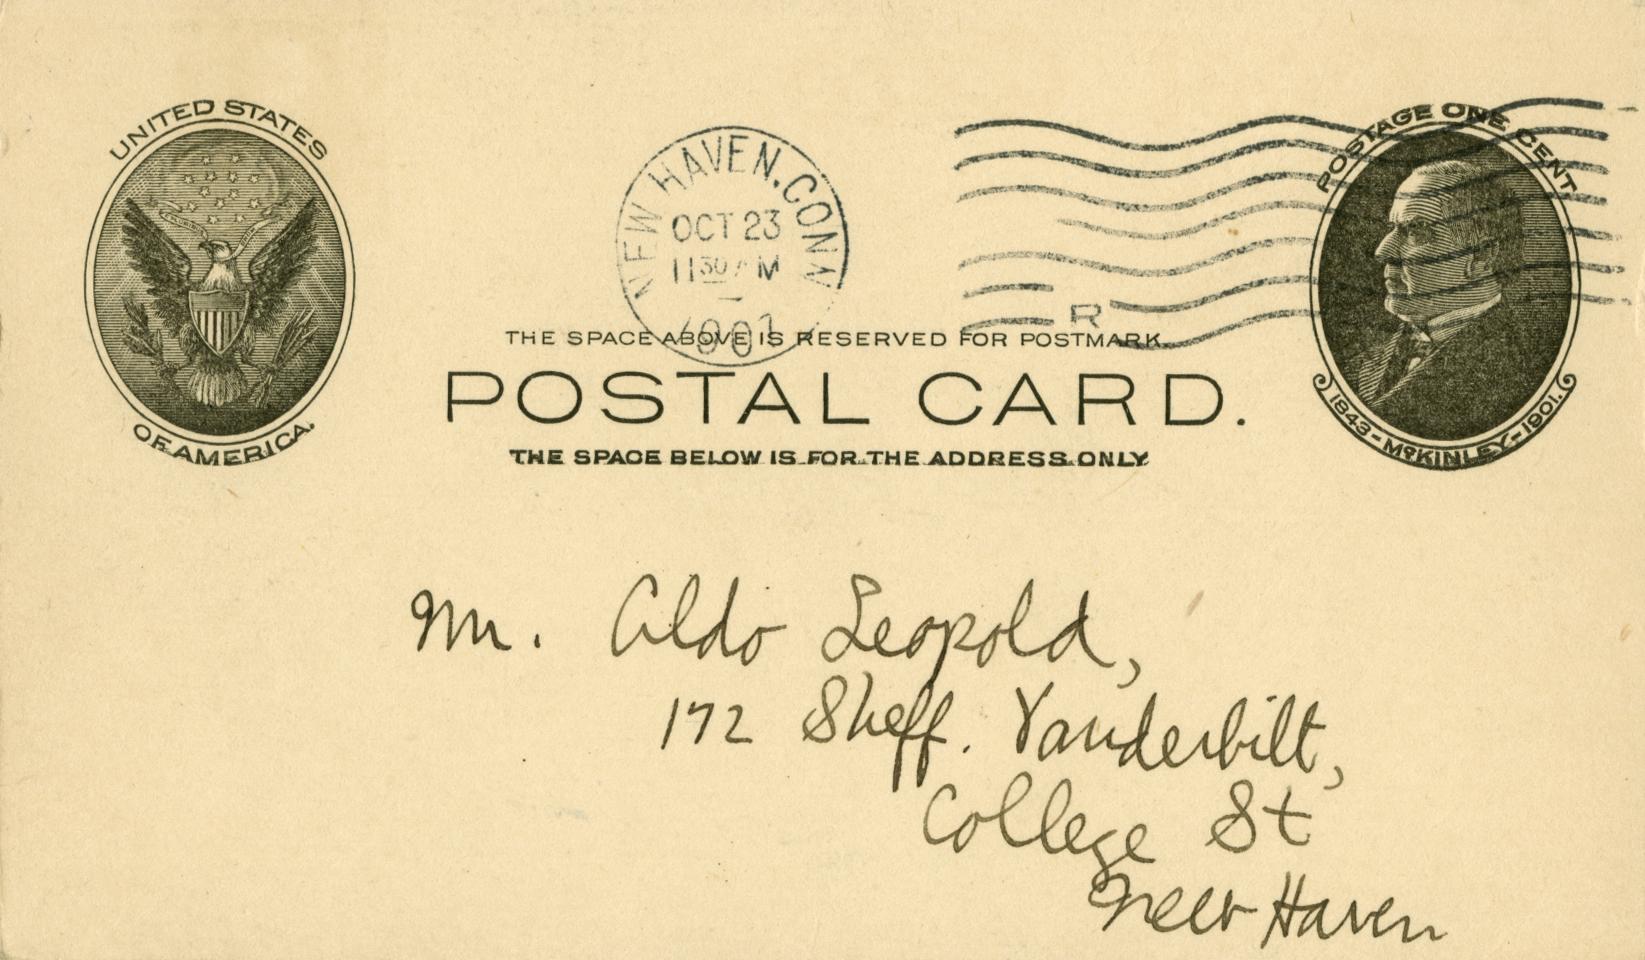 UNITED STATES
OF AMERICA.
NEW HAVEN, CONN
OCT 23
11 30 AM
R
POSTAGE ONE CENT
1843-McKINLEY-1901.
THE SPACE ABOVE IS RESERVED FOR POSTMARK.
POSTAL CARD.
THE SPACE BELOW IS FOR THE ADDRESS ONLY
Mr. Aldo Leopold,
172 Sheff. Vanderbilt,
College St
New Haven